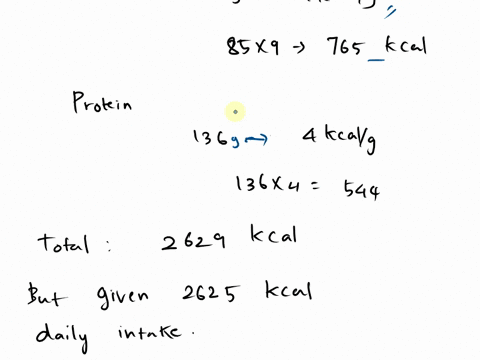 85×9 → 765 kcal
Protein
136g → 4 kcal/g
136×4 = 544
Total : 2629 kcal
But given 2625 kcal
daily intake.